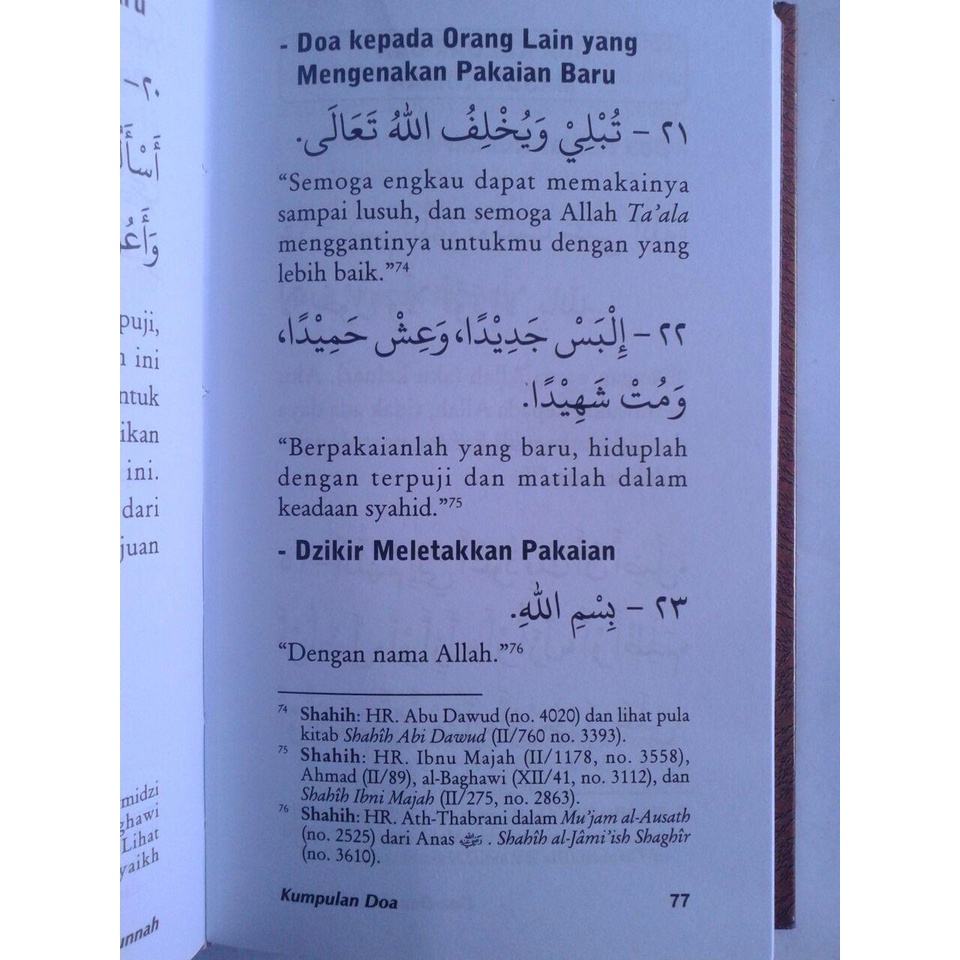 ru
٢٠-
أَسْأَلُ
وَأَعُ
puji,
n ini
ntuk
ikan
ini.
dari
juan
midzi
ghawi
Lihat
yaikh
unnah
- Doa kepada Orang Lain yang
Mengenakan Pakaian Baru
٢١ - تُبْلِيْ وَيُخْلِفُ اللهُ تَعَالَى.
“Semoga engkau dapat memakainya
sampai lusuh, dan semoga Allah Ta’ala
menggantinya untukmu dengan yang
lebih baik.”74
٢٢ - إِلْبَسْ جَدِيْدًا، وَعِشْ حَمِيْدًا،
وَمُتْ شَهِيْدًا.
“Berpakaianlah yang baru, hiduplah
dengan terpuji dan matilah dalam
keadaan syahid.”75
- Dzikir Meletakkan Pakaian
٢٣ - بِسْمِ اللهِ.
“Dengan nama Allah.”76
74 Shahih: HR. Abu Dawud (no. 4020) dan lihat pula
kitab Shahîh Abi Dawud (II/760 no. 3393).
75 Shahih: HR. Ibnu Majah (II/1178, no. 3558),
Ahmad (II/89), al-Baghawi (XII/41, no. 3112), dan
Shahîh Ibni Majah (II/275, no. 2863).
76 Shahih: HR. Ath-Thabrani dalam Mu’jam al-Ausath
(no. 2525) dari Anas . Shahîh al-Jâmi’ish Shaghîr
(no. 3610).
Kumpulan Doa 77